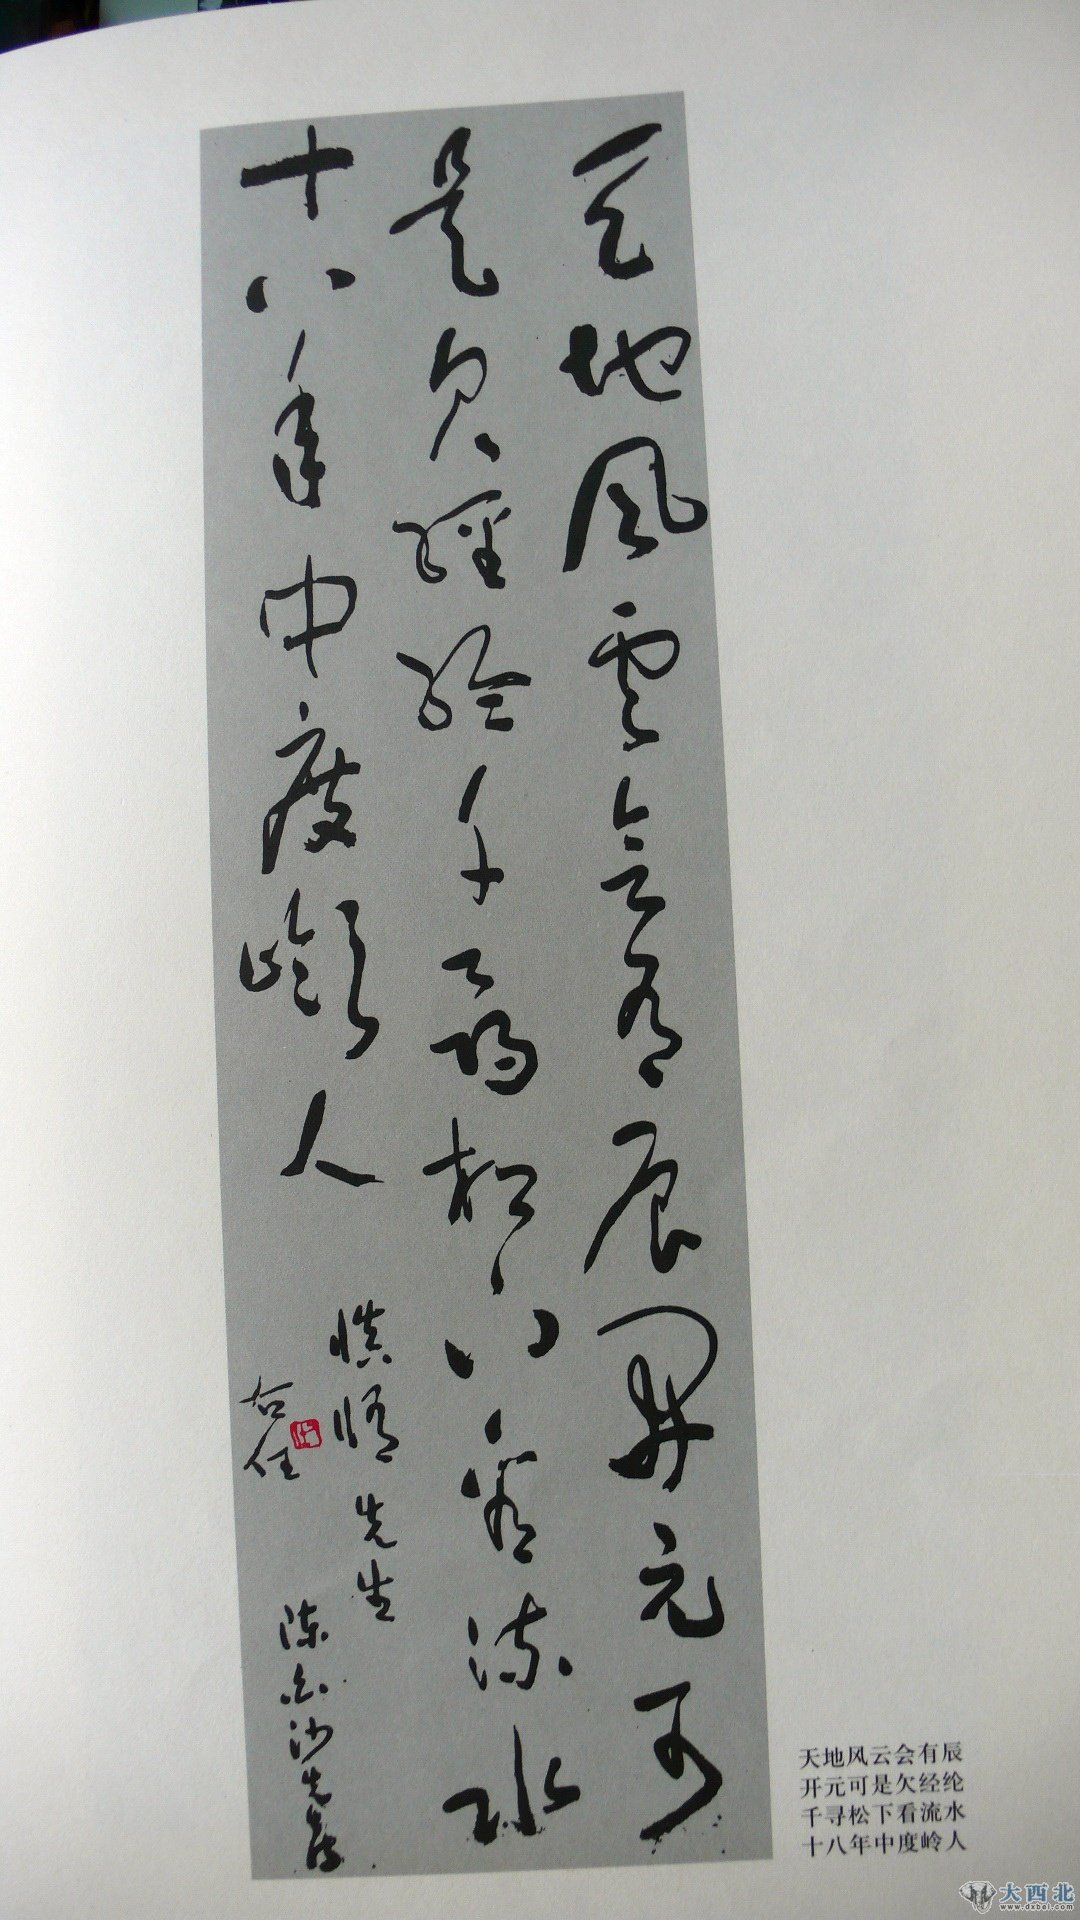 天地風雲會有辰開元可
是欠經綸千尋松下看流水
十八年中度嶺人
慎脩先生
右任
陳白沙先生詩
天地风云会有辰
开元可是欠经纶
千寻松下看流水
十八年中度岭人
大西北
www.dxbei.com